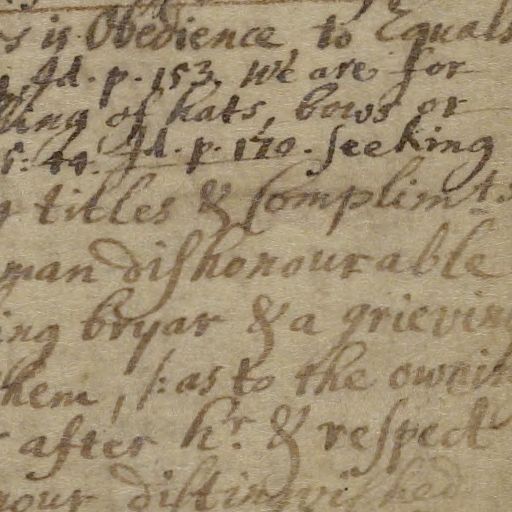 is Obedience, to Equals
Id. p. 153. We are for
of hats, bows or
5: 44. Id. p. 170. seeking
titles & Complimts
man dishonourable
ing bryar & a grieving
them, /: as to the ownin
after hr. & respect
nour distinguished